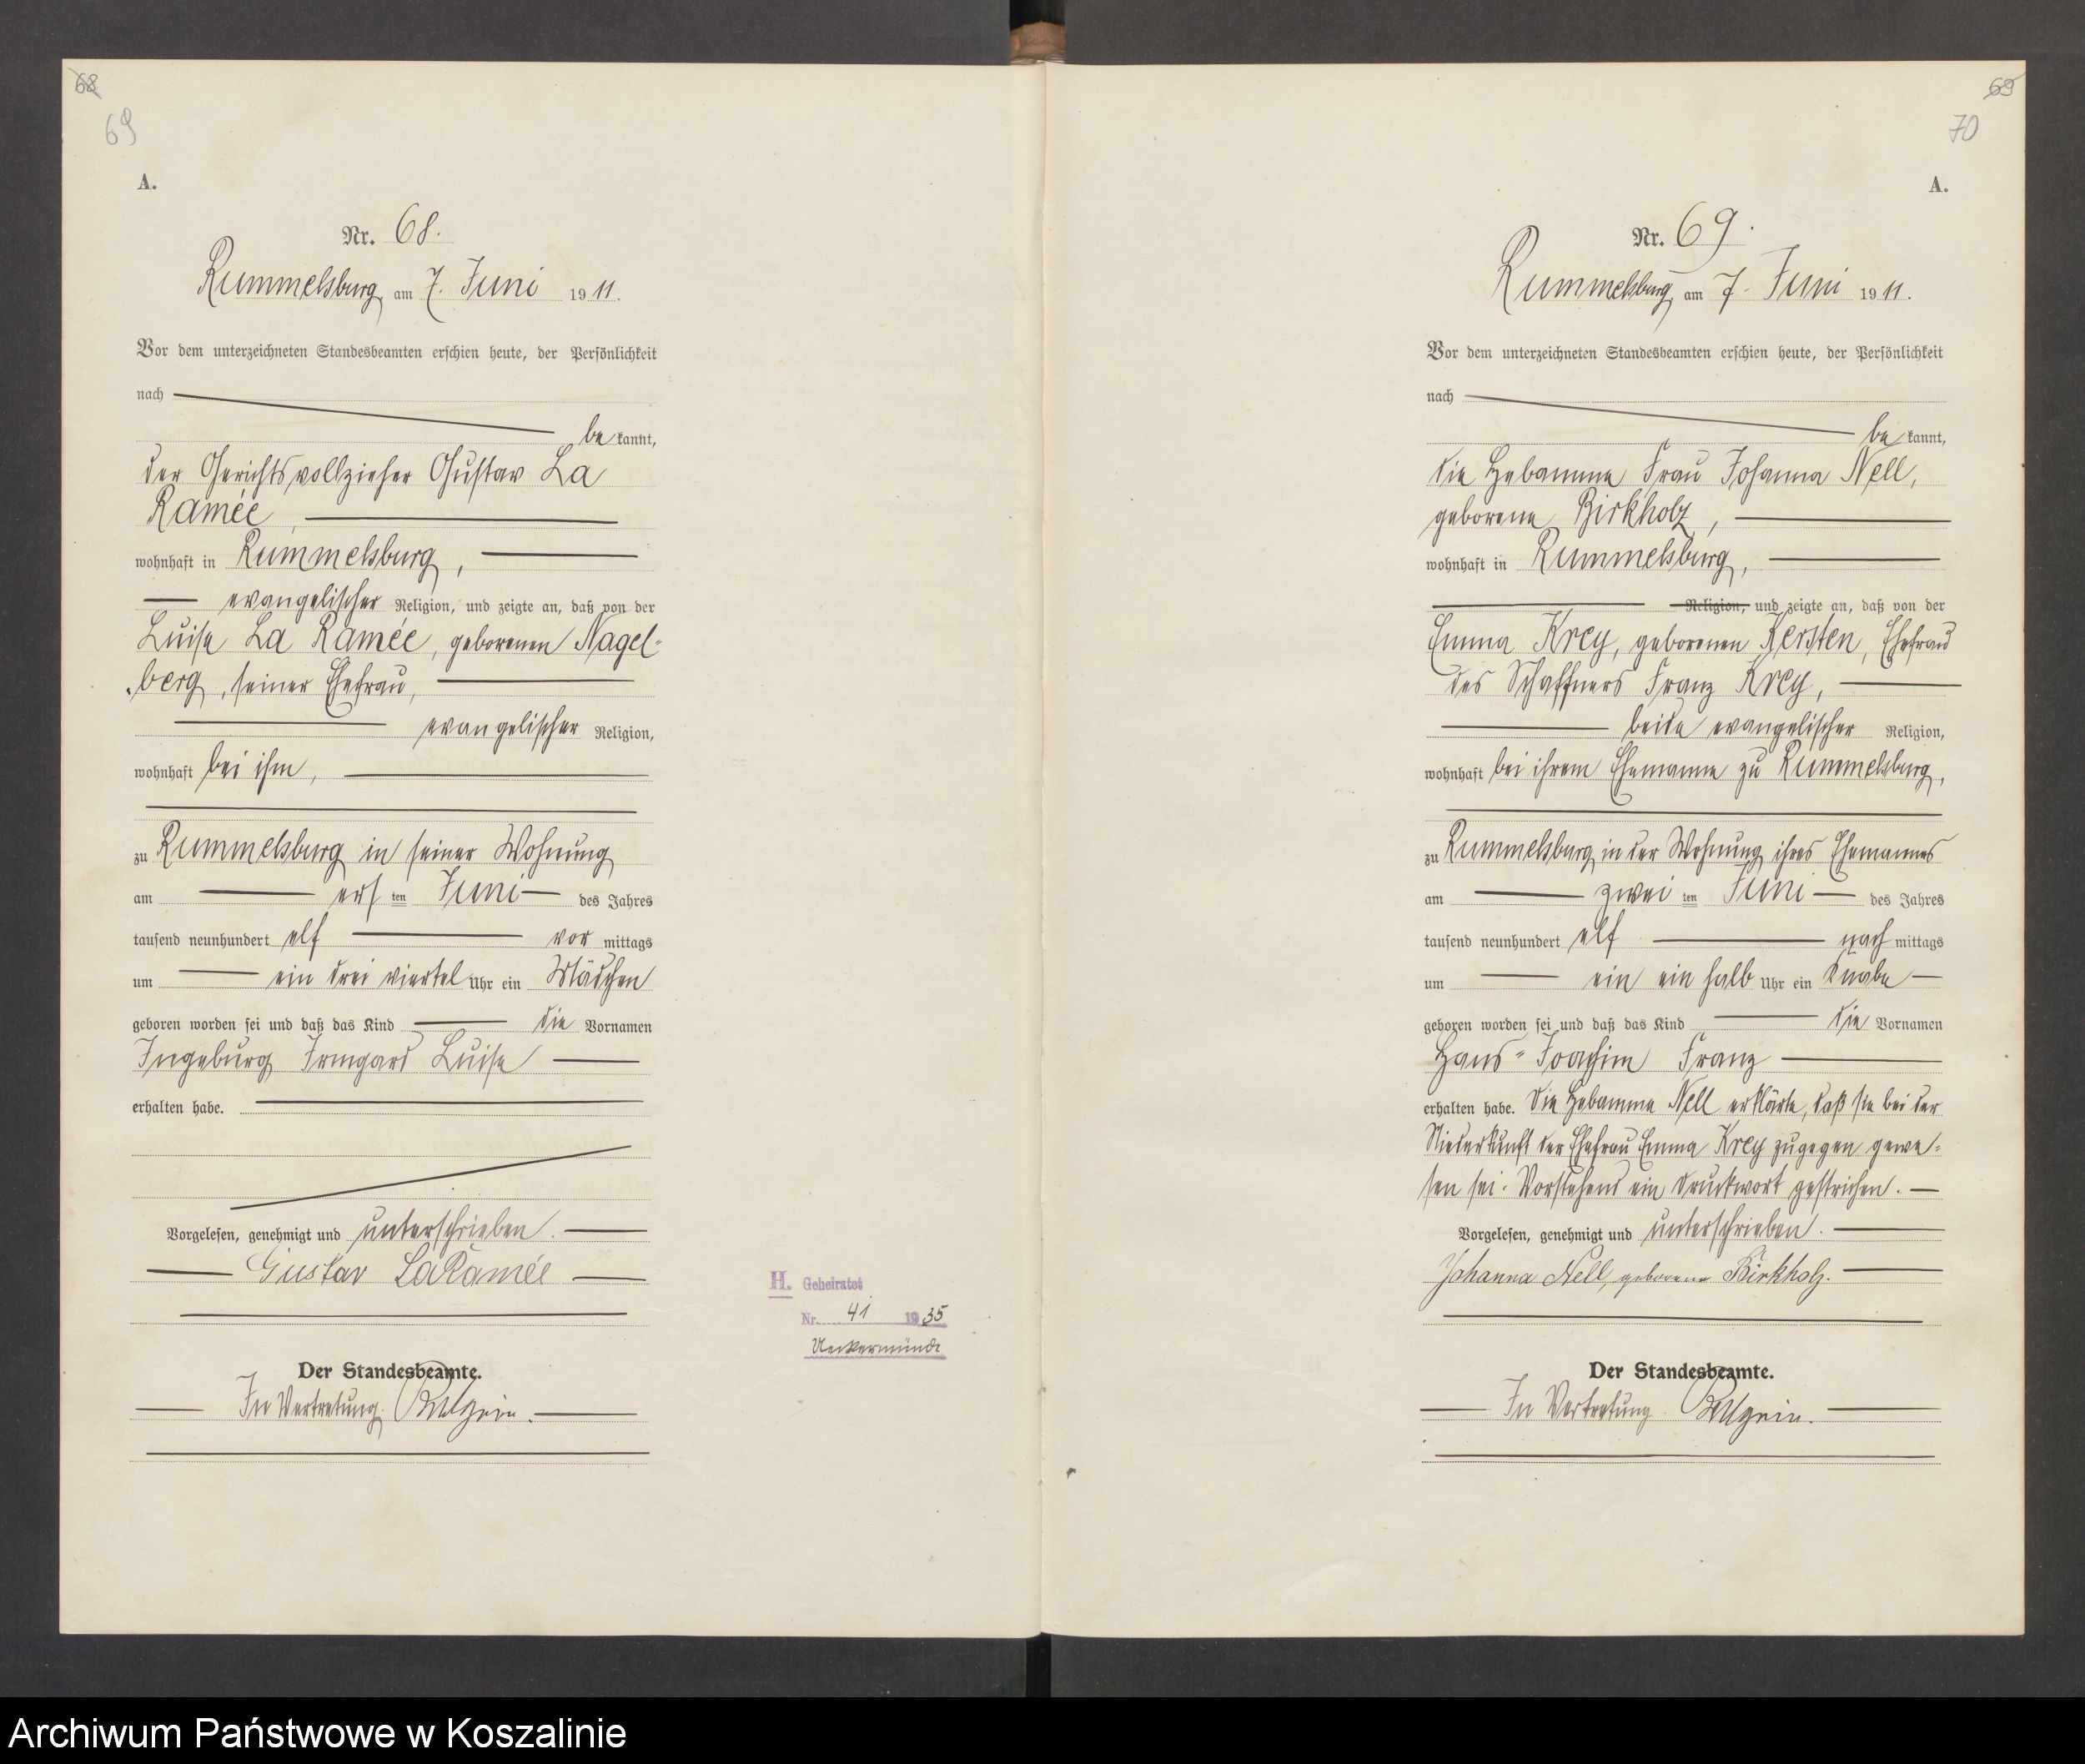 68
69
A.
Nr. 68.
Rummelsburg, am 7. Juni 1911.
Vor dem unterzeichneten Standesbeamten erschien heute, der Persönlichkeit
nach
bekannt,
der Gerichtsvollzieher Gustav La
Ramée,
wohnhaft in Rummelsburg,
evangelischer Religion, und zeigte an, daß von der
Luise La Ramée, geborenen Nagel-
berg, seiner Ehefrau,
evangelischer Religion,
wohnhaft bei ihm,
zu Rummelsburg in seiner Wohnung
am ersten Juni des Jahres
tausend neunhundert elf vormittags
um ein drei viertel Uhr ein Mädchen
geboren worden sei und daß das Kind die Vornamen
Ingeburg Irmgard Luise
erhalten habe.
Vorgelesen, genehmigt und unterschrieben.
Gustav LaRamée
Der Standesbeamte.
In Vertretung.
H. Geheiratet
Nr. 41 1935
Ueckermünde
69
70
A.
Nr. 69.
Rummelsburg, am 7. Juni 1911.
Vor dem unterzeichneten Standesbeamten erschien heute, der Persönlichkeit
nach
bekannt,
die Hebamme Frau Johanna Nell,
geborene Birkholz,
wohnhaft in Rummelsburg,
Religion, und zeigte an, daß von der
Emma Krey, geborenen Kersten, Ehefrau
des Schaffners Franz Krey,
beide evangelischer Religion,
wohnhaft bei ihrem Ehemanne zu Rummelsburg,
zu Rummelsburg in der Wohnung ihres Ehemannes
am zweiten Juni des Jahres
tausend neunhundert elf nachmittags
um ein ein halb Uhr ein Knabe
geboren worden sei und daß das Kind die Vornamen
Hans-Joachim Franz
erhalten habe. Die Hebamme Nell erklärte, daß sie bei der
Niederkunft der Ehefrau Emma Krey zugegen gewe-
sen sei. Vorstehend ein Druckwort gestrichen.
Vorgelesen, genehmigt und unterschrieben.
Johanna Nell, geborene Birkholz.
Der Standesbeamte.
In Vertretung
Archiwum Państwowe w Koszalinie